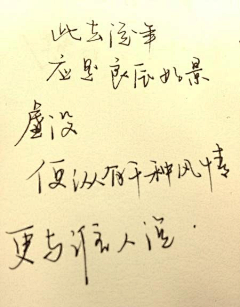 此去经年
应是良辰好景
虚设
便纵有千种风情
更与何人说